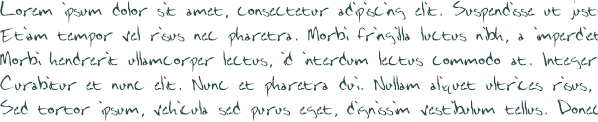 Lorem ipsum dolor sit amet, consectetur adipiscing elit. Suspendisse ut just
Etiam tempor vel risus nec pharetra. Morbi fringilla luctus nibh, a imperdiet
Morbi hendrerit ullamcorper lectus, id interdum lectus commodo at. Integer
Curabitur et nunc elit. Nunc et pharetra dui. Nullam aliquet ultrices risus,
Sed tortor ipsum, vehicula sed purus eget, dignissim vestibulum tellus. Donec